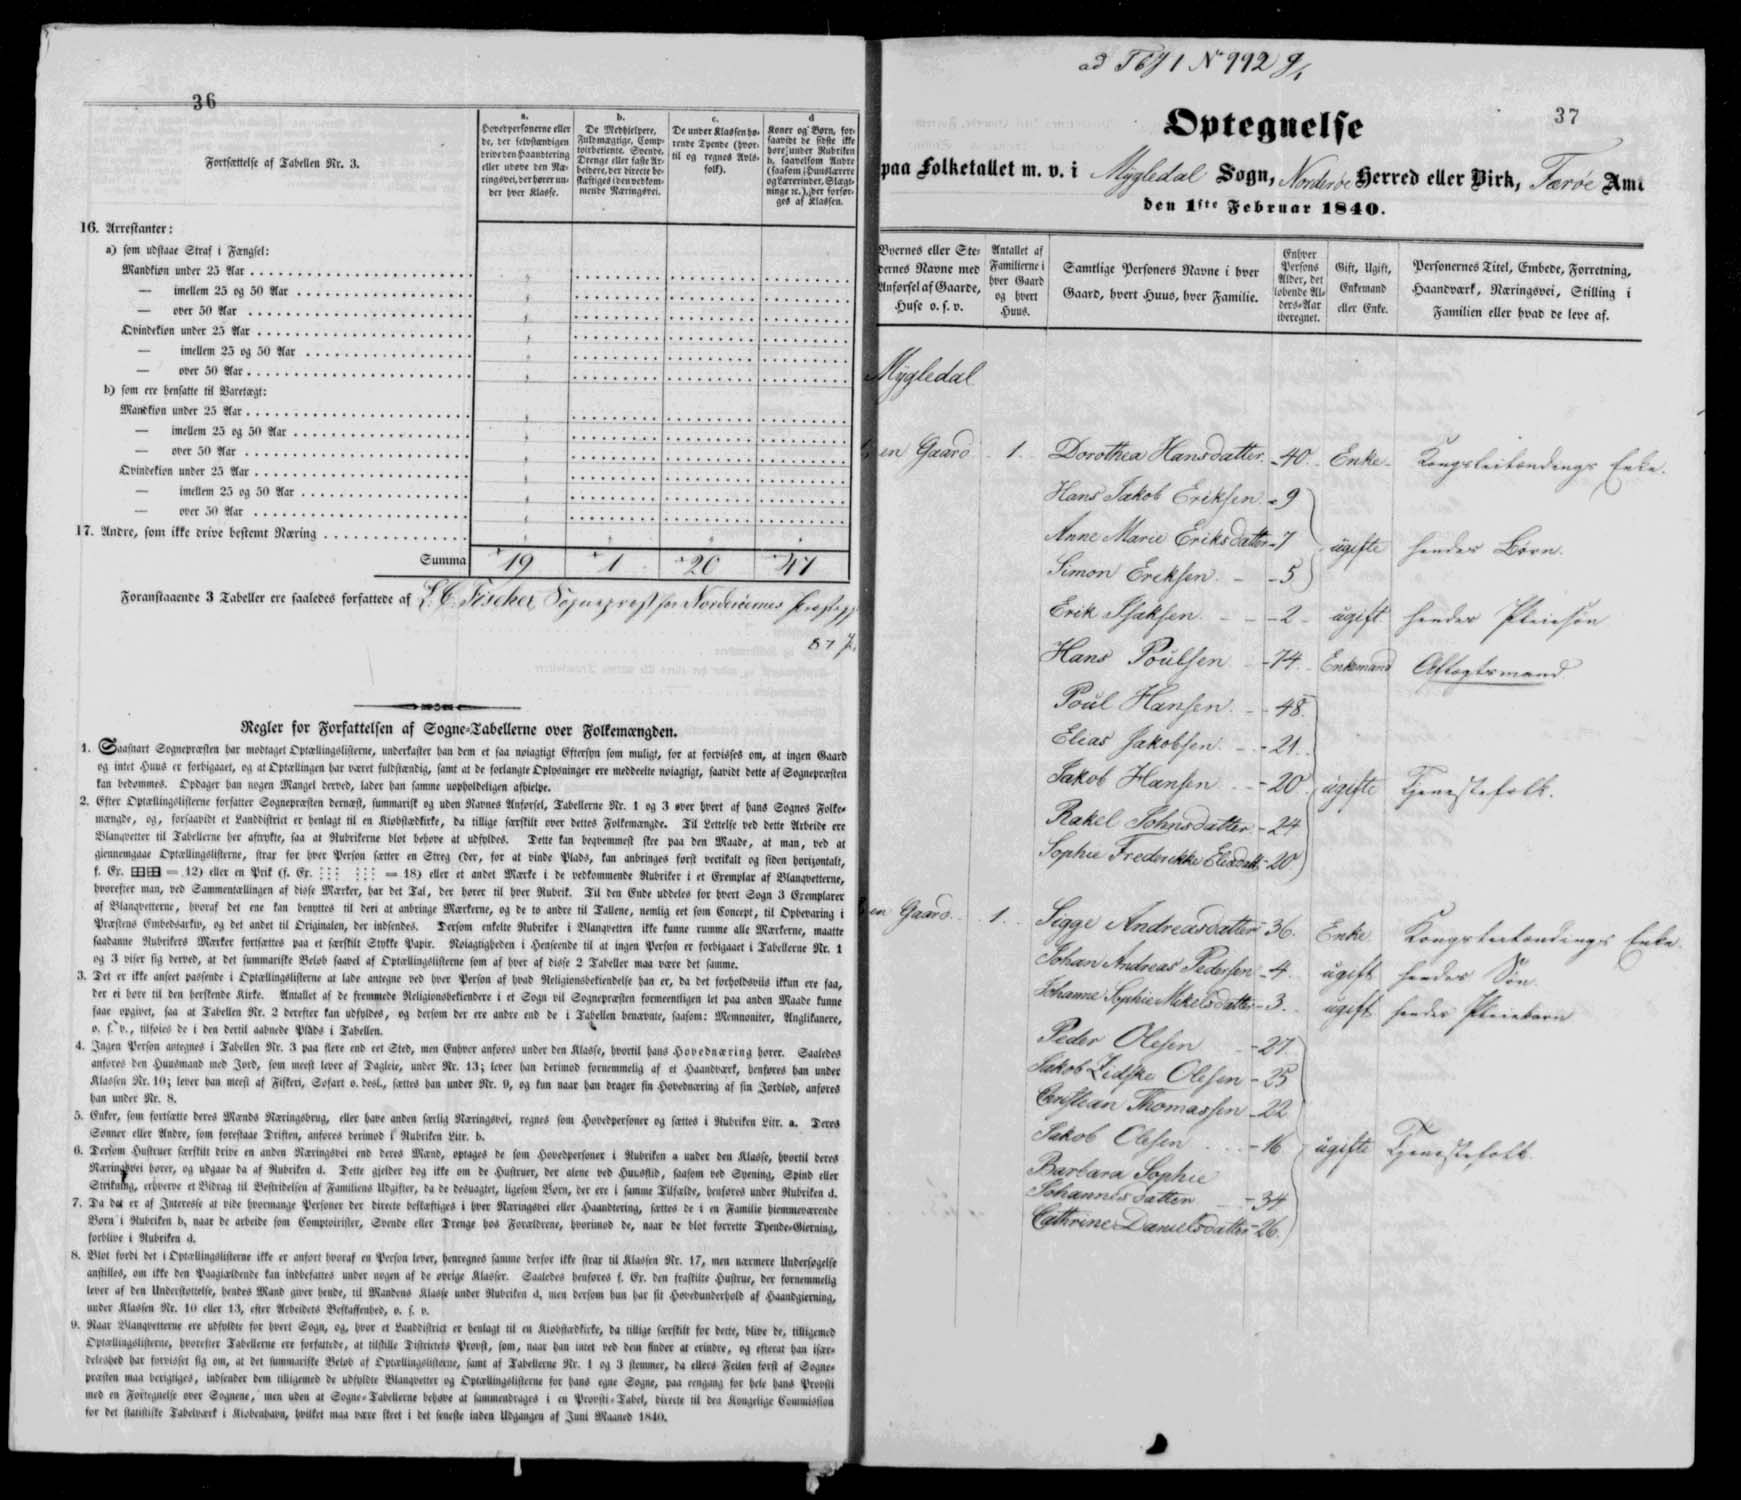 36
Fortsættelse af Tabellen Nr. 3.
a.
Hovedpersonerne eller
de, der selvstændigen
drive den Haandtering
eller udøve den Næ-
ringsvei, der hører un-
der hver Klasse.
b.
De Medhielpere,
Fuldmægtige, Comp-
toirbetiente, Svende,
Drenge eller faste Ar-
beidere, der directe be-
skæftiges i den vedkom-
mende Næringsvei.
c.
De under Klassen hø-
rende Tyende (hvor-
til og regnes Avls-
folk).
d
Koner og Børn, for-
saavidt de sidste ikke
høre under Rubriken
b, saavelsom Andre
(saasom Huuslærere
og Lærerinder, Slægt-
ninge ic.), der forsør-
ges af Klassen.
16. Arrestanter:
a) som udstaae Straf i Fængsel:
Mandkiøn under 25 Aar
— imellem 25 og 50 Aar
— over 50 Aar
Qvindekiøn under 25 Aar
— imellem 25 og 50 Aar
— over 50 Aar
b) som ere hensatte til Varetægt:
Mandkiøn under 25 Aar
— imellem 25 og 50 Aar
— over 50 Aar
Qvindekiøn under 25 Aar
— imellem 25 og 50 Aar
— over 50 Aar
17. Andre, som ikke drive bestemt Næring
Summa 19 1 20 47
Foranstaaende 3 Tabeller ere saaledes forfattede af L. C. Fischer Sognepræst for Norderøernes
87
Regler for Forfattelsen af Sogne-Tabellerne over Folkemængden.
1. Saasnart Sognepræsten har modtaget Optællingslisterne, underkaster han dem et saa nøiagtigt Eftersyn som muligt, for at forvisses om, at ingen Gaard
og intet Huus er forbigaaet, og at Optællingen har været fuldstændig, samt at de forlangte Oplysninger ere meddeelte nøiagtigt, saavidt dette af Sognepræsten
kan bedømmes. Opdager han nogen Mangel derved, lader han samme uopholdeligen afhielpe.
2. Efter Optællingslisterne forfatter Sognepræsten dernæst, summarisk og uden Navnes Anførsel, Tabellerne Nr. 1 og 3 over hvert af hans Sognes Folke-
mængde, og, forsaavidt et Landdistrict er henlagt til en Kiøbstædkirke, da tillige særskilt over dettes Folkemængde. Til Lettelse ved dette Arbeide ere
Blanqvetter til Tabellerne her aftrykte, saa at Rubrikerne blot behøve at udfyldes. Dette kan beqvemmest skee paa den Maade, at man, ved at
giennemgaae Optællingslisterne, strax for hver Person sætter en Streg (der, for at vinde Plads, kan anbringes først vertikalt og siden horizontalt,
f. Ex. = 12) eller en Prik (f. Ex. = 18) eller et andet Mærke i de vedkommende Rubriker i et Exemplar af Blanqvetterne,
hvorefter man, ved Sammentællingen af disse Mærker, har det Tal, der hører til hver Rubrik. Til den Ende uddeles for hvert Sogn 3 Exemplarer
af Blanqvetterne, hvoraf det ene kan benyttes til deri at anbringe Mærkerne, og de to andre til Tallene, nemlig eet som Concept, til Opbevaring i
Præstens Embedsarkiv, og det andet til Originalen, der indsendes. Dersom enkelte Rubriker i Blanqvetten ikke kunne rumme alle Mærkerne, maatte
saadanne Rubrikers Mærker fortsættes paa et særskilt Stykke Papir. Nøiagtigheden i Henseende til at ingen Person er forbigaaet i Tabellerne Nr. 1
og 3 viser sig derved, at det summariske Beløb saavel af Optællingslisterne som af hver af disse 2 Tabeller maa være det samme.
3. Det er ikke anseet passende i Optællingslisterne at lade antegne ved hver Person af hvad Religionsbekiendelse han er, da det forholdsviis ikkun ere faa,
der ei høre til den herskende Kirke. Antallet af de fremmede Religionsbekiendere i et Sogn vil Sognepræsten formeentligen let paa anden Maade kunne
faae opgivet, saa at Tabellen Nr. 2 derefter kan udfyldes, og dersom der ere andre end de i Tabellen benævnte, saasom: Memnoniter, Anglikanere,
o. s. v., tilføies de i den dertil aabnede Plads i Tabellen.
4. Ingen Person antegnes i Tabellen Nr. 3 paa flere end eet Sted, men Enhver anføres under den Klasse, hvortil hans Hovednæring hører. Saaledes
anføres den Huusmand med Jord, som meest lever af Dagleie, under Nr. 13; lever han derimod fornemmelig af et Haandværk, henføres han under
Klassen Nr. 10; lever han meest af Fiskeri, Søfart o. desl., sættes han under Nr. 9, og kun naar han drager sin Hovednæring af sin Jordlod, anføres
han under Nr. 8.
5. Enker, som fortsætte deres Mænds Næringsbrug, eller have anden særlig Næringsvei, regnes som Hovedpersoner og sættes i Rubriken Litr. a. Deres
Sønner eller Andre, som forestaae Driften, anføres derimod i Rubriken Litr. b.
6. Dersom Hustruer særskilt drive en anden Næringsvei end deres Mænd, optages de som Hovedpersoner i Rubriken a under den Klasse, hvortil deres
Næringsvei hører, og udgaae da af Rubriken d. Dette gielder dog ikke om de Hustruer, der alene ved Huusflid, saasom ved Syening, Spind eller
Strikning, erhverve et Bidrag til Bestridelsen af Familiens Udgifter, da de desuagtet, ligesom Børn, der ere i samme Tilfælde, henføres under Rubriken d.
7. Da det er af Interesse at vide hvormange Personer der directe beskæftiges i hver Næringsvei eller Haandtering, sættes de i en Familie hiemmeværende
Børn i Rubriken b, naar de arbeide som Comptoirister, Svende eller Drenge hos Forældrene, hvorimod de, naar de blot forrette Tyende-Gierning,
forblive i Rubriken d.
8. Blot fordi det i Optællingslisterne ikke er anført hvoraf en Person lever, henregnes samme derfor ikke strax til Klassen Nr. 17, men nærmere Undersøgelse
anstilles, om ikke den Paagiældende kan indbefattes under nogen af de øvrige Klasser. Saaledes henføres f. Ex. den fraskilte Hustrue, der fornemmelig
lever af den Understøttelse, hendes Mand giver hende, til Mandens Klasse under Rubriken d, men dersom hun har sit Hovedunderhold af Haandgierning,
under Klassen Nr. 10 eller 13, efter Arbeidets Beskaffenhed, o. s. v.
9. Naar Blanqvetterne ere udfyldte for hvert Sogn, og, hvor et Landdistrict er henlagt til en Kiøbstædkirke, da tillige særskilt for dette, blive de, tilligemed
Optællingslisterne, hvorefter Tabellerne ere forfattede, at tilstille Districtets Provst, som, naar han intet ved dem finder at erindre, og efterat han især-
deleshed har forvisset sig om, at det summariske Beløb af Optællingslisterne, samt af Tabellerne Nr. 1 og 3 stemmer, da ellers Feilen først af Sogne-
præsten maa berigtiges, indsender dem tilligemed de udfyldte Blanqvetter og Optællingslisterne for hans egne Sogne, paa eengang for hele hans Provsti
med en Fortegnelse over Sognene, men uden at Sogne-Tabellerne behøve at sammendrages i en Provsti-Tabel, directe til den Kongelige Commission
for det statistiske Tabelværk i Kiøbenhavn, hvilket maa være skeet i det seneste inden Udgangen af Juni Maaned 1840.
ad No 992
37
Optegnelse
paa Folketallet m. v. i Mygledal Sogn, Norderøe Herred eller Birk, Færøe Amt
den 1ste Februar 1840.
Byernes eller Ste-
dernes Navne med
Anførsel af Gaarde,
Huse o. s. v.
Antallet af
Familierne i
hver Gaard
og hvert
Huus.
Samtlige Personers Navne i hver
Gaard, hvert Huus, hver Familie.
Enhver
Persons
Alder, det
løbende Al-
ders-Aar
iberegnet.
Gift, Ugift,
Enkemand
eller Enke.
Personernes Titel, Embede, Forretning,
Haandværk, Næringsvei, Stilling i
Familien eller hvad de leve af.
Mygledal
en Gaard 1. Dorothea Hansdatter 40. Enke Kongsleilændings Enke.
Hans Jakob Eriksen 9
Anne Marie Eriksdatter 7 ugifte hendes Børn.
Simon Eriksen 5
Erik Isaksen 2 ugift hendes Pleiesøn
Hans Poulsen 74. Enkemand Aftægtsmand
Poul Hansen 48.
Elias Jakobsen 21.
Jakob Hansen 20 ugifte Tjenestefolk.
Rakel Johnsdatter 24
Sophie Frederikke Eliasdatt. 20
en Gaard 1. Sigge Andreasdatter 36. Enke Kongsleilændings Enke.
Johan Andreas Pedersen 4. ugift hendes Søn.
Johanne Sophie Mikelsdatter 3. ugift hendes Pleiebarn
Peder Olesen 27
Jakob Zidske Olesen 25
Christian Thomassen 22
Jakob Olesen 16 ugifte Tjenestefolk.
Barbara Sophie
Johannesdatter 34
Cathrine Danielsdatter 26.